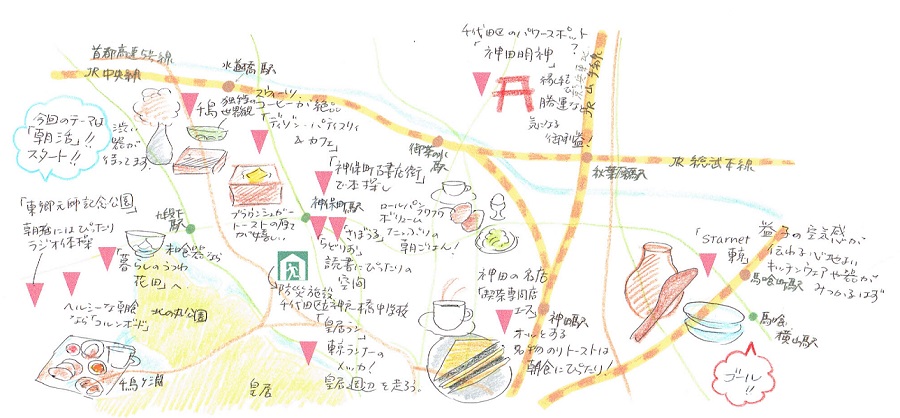 首都高速5号線
JR中央線
水道橋駅
今回のテーマは
「朝活」!!
スタート!!
渋い
器が
待ってます
千鳥
独特の
世界観
スウィーツ、
コーヒーが絶品
「ティシャン・パティスリィ
&カフェ」
ブラウンシュガー
トーストの厚さ
がうれしい
千代田区のパワースポット
「神田明神」?
縁結び
勝運など
気になる
御利益!
JR山手線
御茶の水
駅
秋葉原駅
JR総武本線
「東郷元帥記念公園」
朝活にはぴったり
ラジオ体操
九段下
駅
和食器なら
「暮らしのうつわ
花田」へ
ヘルシーな朝食
なら「コルンボギド」
千鳥ヶ淵
北の丸公園
皇居
「神保町古書店街」
で本探し
神保町駅
「さぼうる」
「らどりお」
読書にぴったりの
空間
ロールパン
フワフワ
ボリューム
たっぷりの
朝ごはん!
防災施設
千代田区立神田一橋中学校
「皇居ラン」
東京ランナーの
メッカ!
皇居周辺を走ろう。
神田の名店
「喫茶専門店
エース」
神田駅
ホッとする
名物のりトーストは
朝食にぴったり!
「starnet
東京」
益子の空気感が
伝わる心地よい
キッチンウェアや器が
みつかるはず
馬喰町駅
馬喰
横山駅
ゴール
!!